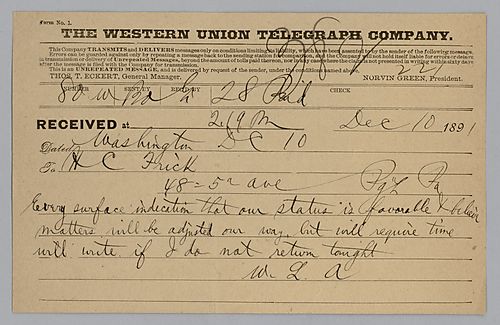 Form No. 1.
THE WESTERN UNION TELEGRAPH COMPANY.
This Company TRANSMITS and DELIVERS messages only on conditions limiting its liability, which have been assented to by the sender of the following message.
Errors can be guarded against only by repeating a message back to the sending station for comparison, and the Company will not hold itself liable for errors or delays
in transmission or delivery of Unrepeated Messages, beyond the amount of tolls paid thereon, nor in any case where the claim is not presented in writing within sixty days
after the message is filed with the Company for transmission.
This is an UNREPEATED MESSAGE, and is delivered by request of the sender, under the conditions named above.
THOS. T. ECKERT, General Manager. NORVIN GREEN, President.
NUMBER SENT BY REC'D BY CHECK
80 W a 28 Paid
RECEIVED at Dec 10 1891
Dated Washington DC 10
To H C Frick
48 - 5th ave Pgh Pa
Every surface indication that our status is favorable & believe
matters will be adjusted our way, but will require time
will write if I do not return tonight
W. L. A